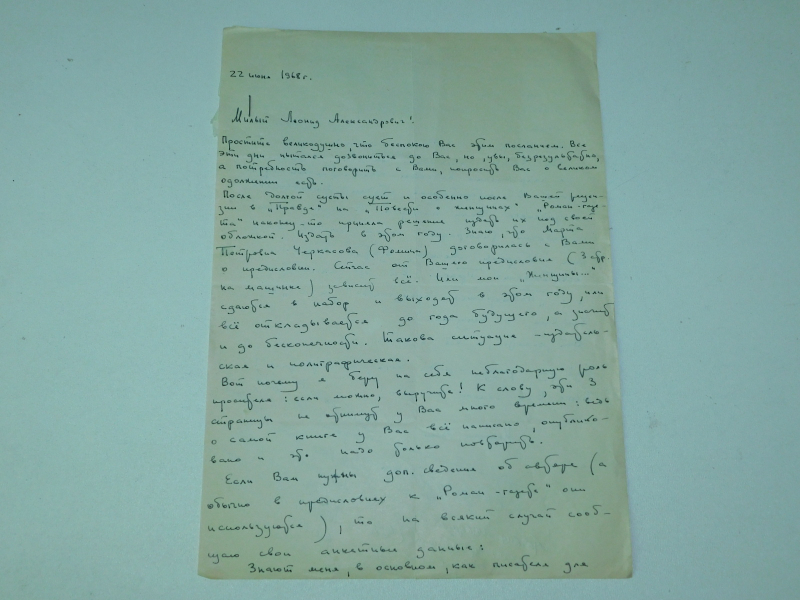 22 июня 1968 г.
Милый Леонид Александрович!
Простите великодушно, что беспокою Вас этим посланием. Все
эти дни пытался дозвониться до Вас, но, увы, безрезультатно,
а потребность поговорить с Вами, попросить Вас о великом
одолжении есть.
После долгой сусты суст и особенно после Вашей рецен-
зии в "Правде" на "Повести о женщинах" "Роман-газе-
та" наконец-то приняла решение издать их под своей
обложкой. Издать в этом году. Знаю, что Марта
Петровна Черкасова (Фомина) договорилась с Вами
о предисловии. Сейчас от Вашего предисловия (3 стр
на машинке) зависит всё. Или мои "Женщины..."
сдаются в набор и выходят в этом году, или
всё откладывается до года будущего, а значит
и до бесконечности. Такова ситуация – издатель-
ская и полиграфическая.
Вот почему я беру на себя неблагодарную роль
просителя: если можно, выручите! К слову, эти 3
страницы не отнимут у Вас много времени: ведь
о самой книге у Вас всё написано, опублико-
вано и это надо только повторить.
Если Вам нужны доп. сведения об авторе (а
обычно в предисловиях к "Роман-газете" они
используются), то на всякий случай сооб-
щаю свои анкетные данные:
Знают меня, в основном, как писателя для